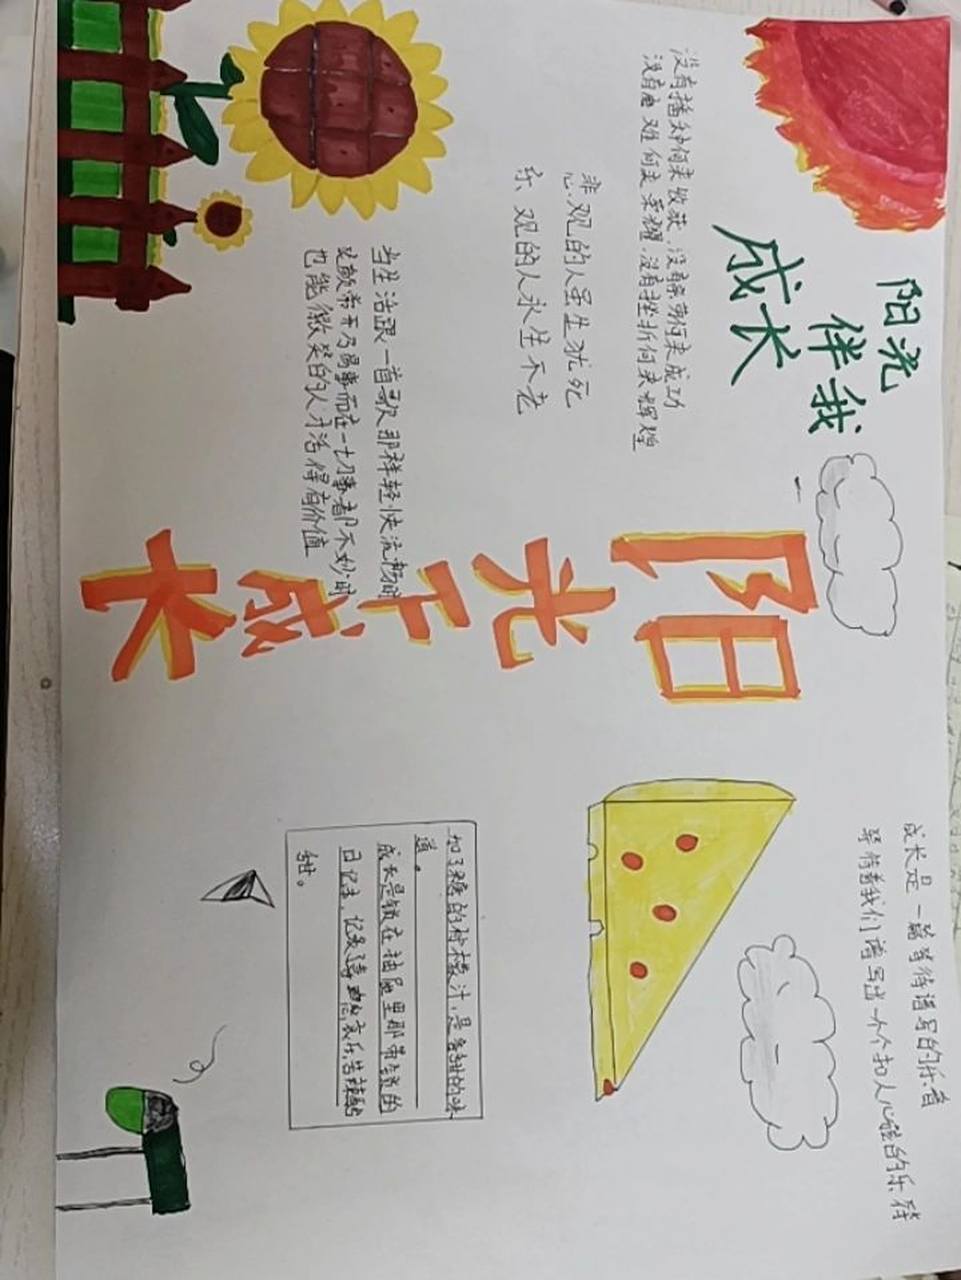 阳光
伴我
成长
没有播种何来收获,没有辛劳何来成功
没有磨难何来荣耀,没有挫折何来辉煌
悲观的人虽生犹死
乐观的人永生不老
当生活跟一首歌那样轻快流畅时
笑颜常开乃易事而在一切事都不妙时
也能微笑的人才活得有价值
阳光下成长
成长是一篇等待谱写的乐章
等待着我们谱写出一个个扣人心弦的乐
加了糖的柠檬汁,是 甜的味
道。
成长是锁在抽屉里那带锁的
日记本,记录了喜
甜。